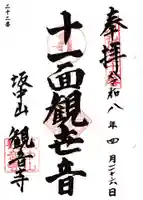 奉拝
令和八年四月二十六日
十一面観世音
坂中山
観音寺
二十二番